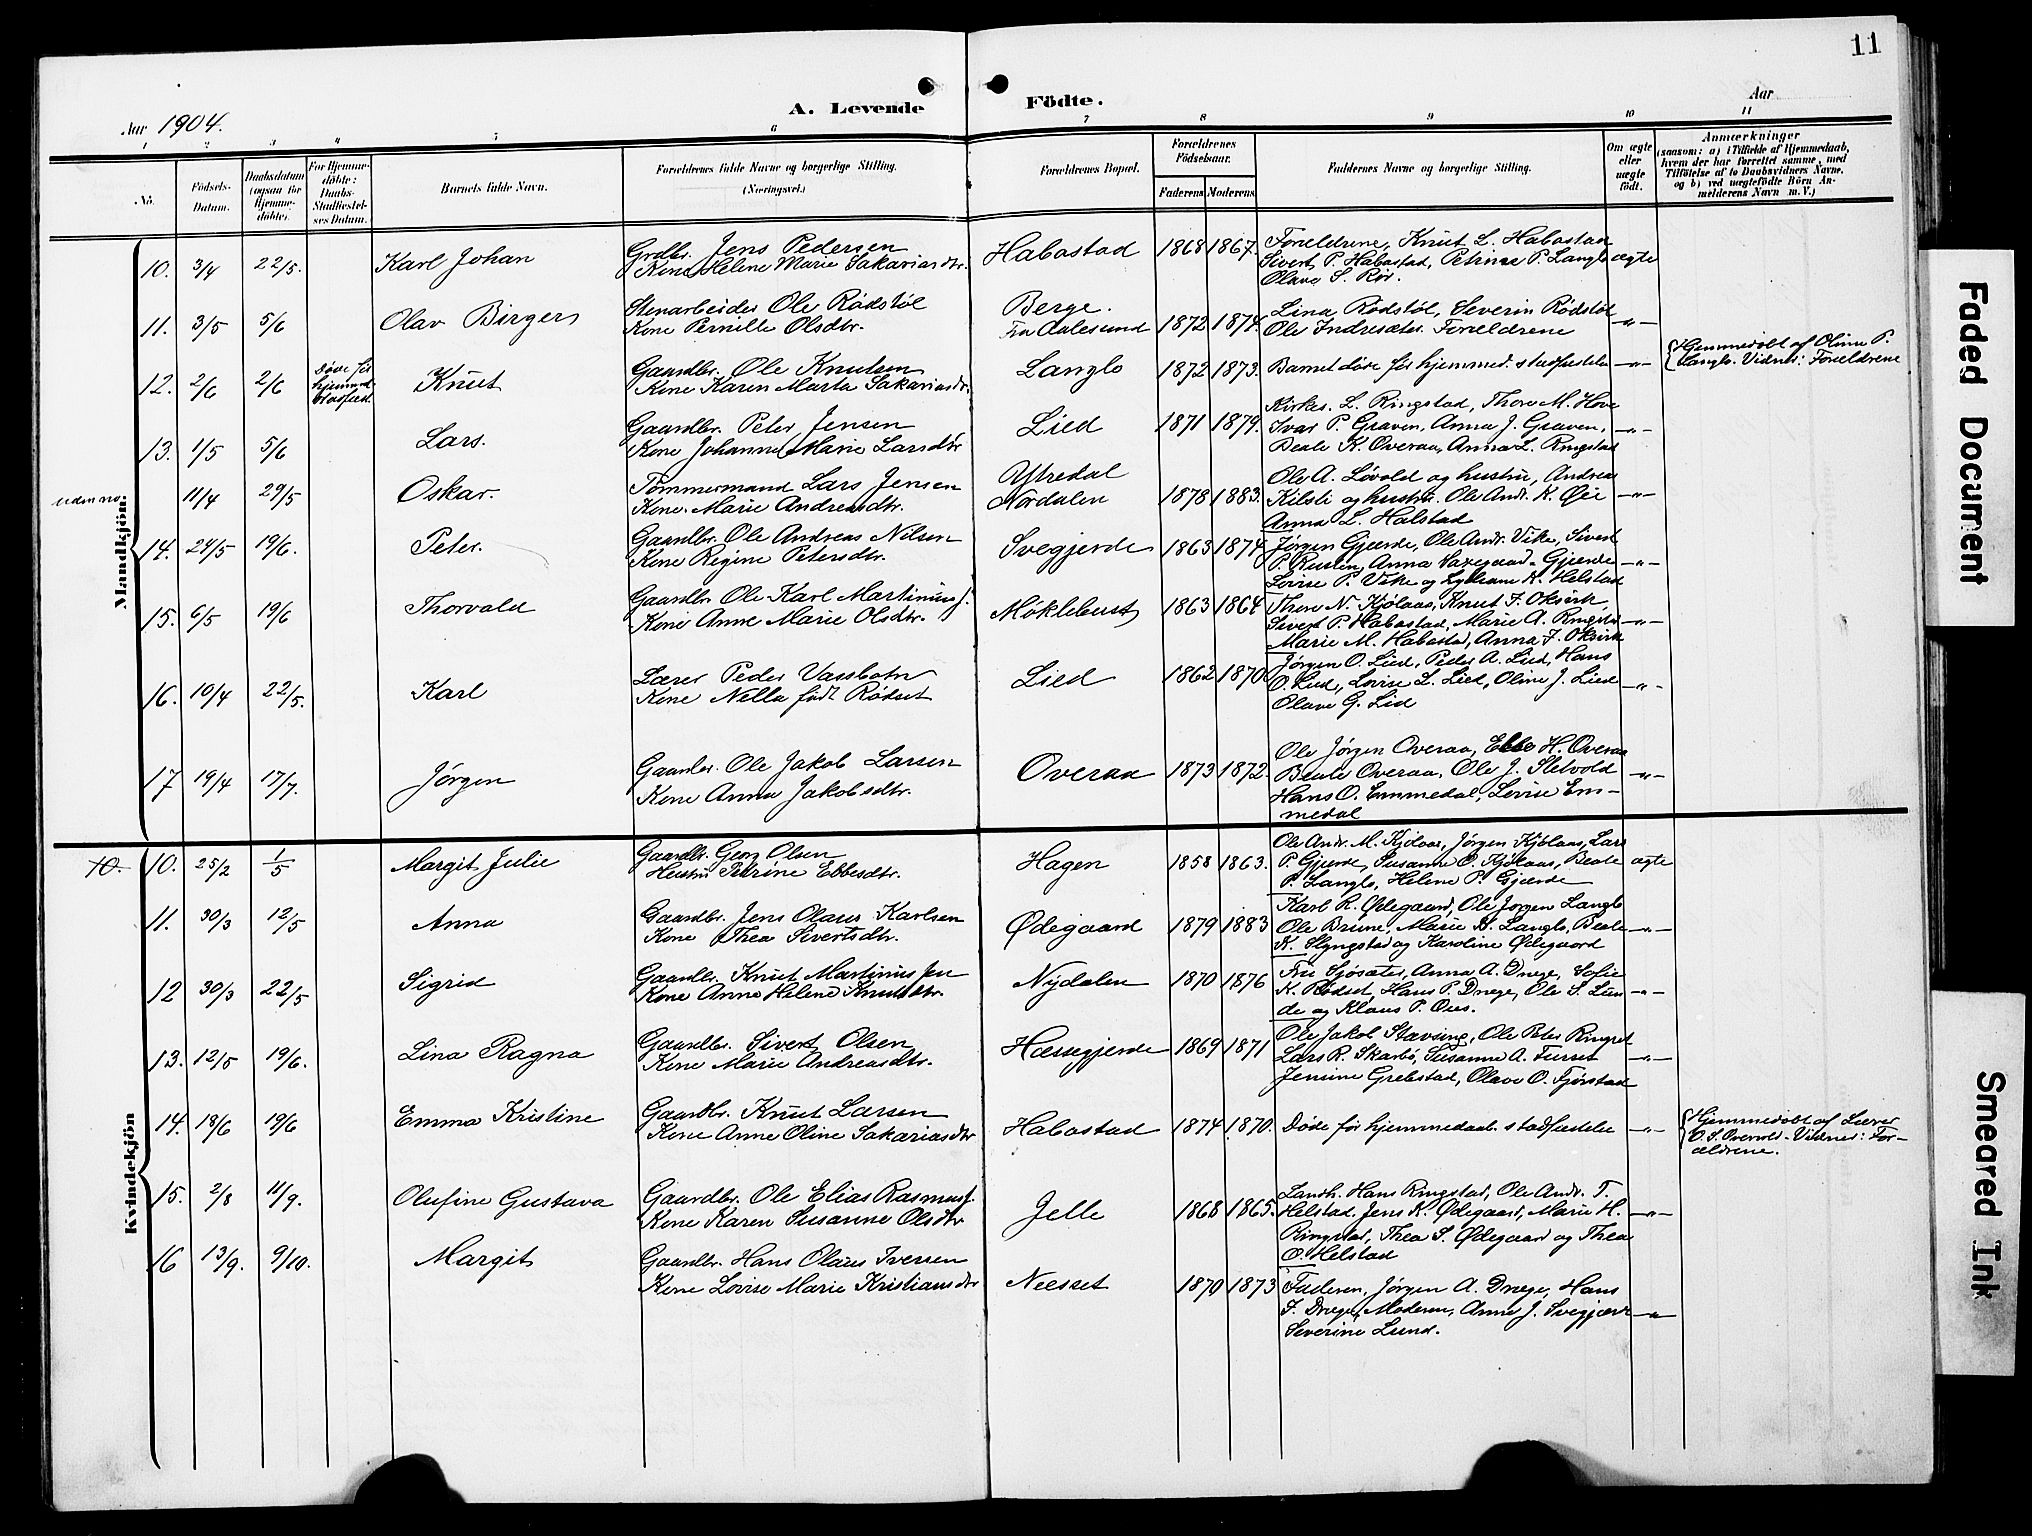 11
A. Levende Födte.
Aar 1904.
Aar
1 2 3 4 5 6 7 8 9 10 11
No.
Födsels-Datum.
Daabsdatum (ogsaa for Hjemme-döbte).
For Hjemme-döbte: Daabs-Stadfæstel-ses Datum.
Barnets fulde Navn.
Forældrenes fulde Navne og borgerlige Stilling. (Næringsvei.)
Forældrenes Bopæl.
Forældrenes Födselsaar.
Faderens Moderens
Faddernes Navne og borgerlige Stilling.
Om ægte eller uægte födt.
Anmærkninger (saasom: a) i Tilfælde af Hjemmedaab, hvem der har forrettet samme, med Tilföielse af to Daabsvidners Navne, og b) ved uægtefödte Börn Anmelderens Navn m. V.)
Mandkjön.
10. 3/4 22/5. Karl Johan
Grdbr. Jens Pedersen
Kone Helene Marie Sakariasdtr.
Habostad 1868 1867.
Forældrene, Knut L. Habostad
Sivert P. Habostad, Petrine P. Langlo
Olave S. Rør.
ægte
11. 3/5 5/6 Olav Birger
Stenarbeider Ole Rødstøl
Kone Pernille Olsdtr.
Berge.
Fra Aalesund 1872 1874.
Lina Rødstøl, Severin Rødstøl
Ole Indresæter. Forældrene
-"-
12. 2/6 2/6
Døde før
hjemmed.
stadfæst.
Knut
Gaardbr. Ole Knutsen
Kone Karen Marta Sakariasdtr.
Langlo 1872 1873.
Barnet døde før hjemmed. stadfæstelse -"-
Hjemmedøbt af Oline P.
Langlo. Vidner: Forældrene
13. 1/5 5/6 Lars.
Gaardbr. Peter Jensen
Kone Johanne Marie Larsdtr
Lied 1871 1879.
Kirkes. L. Ringstad, Thore M. Hove
Ivar P. Graven, Anna J. Graven,
Beate K. Overaa, Anna L. Ringstad
-"-
uden no. 11/4 29/5 Oskar.
Tømmermand Lars Jensen
Kone Marie Andreasdtr.
Ytredal
Nordalen 1878 1883.
Ole A. Løvold og hustru, Andreas
Kilsti og hustru. Ole Andr. K. Øie
Anna L. Halstad
-"-
14. 24/5 19/6. Peter.
Gaardbr. Ole Andreas Nilsen
Kone Regine Petersdtr.
Svegjerde 1863 1874
Jørgen Gjerde, Ole Andr. Vike, Sivert
P. Rusten, Anna Gjerde
Lovise P. Vike og K. Helstad
-"-
15. 6/5 19/6 Thorvald
Gaardbr. Ole Karl Martinius J.
Kone Anne Marie Olsdtr.
Møklebust 1863 1864
Thore N. Kjølaas, Knut J. Oksvik
Sivert P. Habostad, Marie A. Ringstad
Marie M. Habostad, Anna J. Oksvik
-"-
16. 10/4 22/5. Karl
Lærer Peder Vassbotn
Kone Nella født Rødset
Lied 1862 1870.
Jørgen O. Lied, Peder A. Lied, Hans
O. Lied, Lovise L. Lied, Oline J. Lied
Olave G. Lid
-"-
17 19/4 17/7. Jørgen
Gaardbr. Ole Jakob Larsen
Kone Anna Jakobsdtr.
Overaa 1873 1872.
Ole Jørgen Overaa, Ebbe H. Overaa
Beate Overaa, Ole J. Sletvold
Hans O. Emmedal, Lovise Em-
medal
-"-
Kvindekjön
10. 10. 25/2 1/5 Margit Julie
Gaardbr. Georg Olsen
Hustru Petrine Ebbesdtr.
Hagen 1858 1863.
Ole Andr. M. Kjølaas, Jørgen Kjølaas, Lars
P. Gjerde, Susanne O. Kjølaas, Beate
P. Langlo, Helene P. Gjærde
ægte
11. 30/3 12/5 Anna
Gaardbr. Jens Olaus Karlsen
Kone Thea Sivertsdtr.
Ødegaard 1879 1883
Karl R. Ødegaard, Ole Jørgen Langlo
Ole Brune, Marie K. Langlo, Beate
K. Slyngstad og Karoline Ødegaard
-"-
12 30/3 22/5 Sigrid
Gaardbr. Knut Martinius Jen
Kone Anne Helene Knutsdtr.
Nydalen 1870 1876
Fru Sjøsæter, Anna A. Drege, Sofie
K. Rødset, Hans P. Drege, Ole S. Lun
de og Klaus P. Ous.
-"-
13. 12/5 19/6. Lina Ragna
Gaardbr. Sivert Olsen
Kone Marie Andreasdtr.
Hessegjerde 1869 1871
Ole Jakob Stavseng, Ole Peter Ringset
Lars R. Skarbø, Susanne A. Furset
Jensine Grebstad, Olave O. Fjørstad
-"-
14. 18/6 19/6 Emma Kristine
Gaardbr. Knut Larsen
Kone Anne Oline Sakariasdtr
Habostad 1874 1870.
Døde før hjemmedaab. stadfæstelse -"-
Hjemmedøbt af Lærer
O. S. Overvold. Vidner: For-
ældrene.
15. 2/8 11/9. Olufine Gustava
Gaardbr. Ole Elias Rasmus J.
Kone Karen Susanne Olsdtr
Jelle 1868 1865.
Landh. Hans Ringstad, Ole Andr. T.
Helstad, Jens K. Ødegaard, Marie H.
Ringstad, Thea S. Ødegaard og Thea
O. Helstad
-"-
16 13/9. 9/10. Margit
Gaardbr. Hans Olaus Iversen
Kone Lovise Marie Kristiansdtr
Neesset 1870 1873
Faderen, Jørgen A. Drege, Hans
J. Drege, Moderen, Anne J. Svegjærde
Severine Lund.
-"-
Faded Document
Smeared Ink